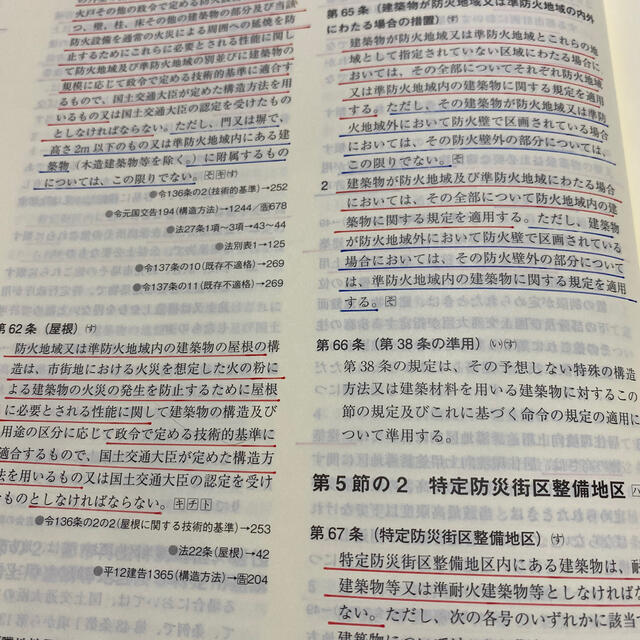 火戸その他の政令で定める防火設
つ、壁、柱、床その他の建築物の部分及び当該
防火設備を通常の火災による周囲への延焼を防
止するためにこれらに必要とされる性能に関し
て防火地域及び準防火地域の別並びに建築物の
規模に応じて政令で定める技術的基準に適合す
るもので、国土交通大臣が定めた構造方法を用
いるもの又は国土交通大臣の認定を受けたもの
としなければならない。ただし、門又は塀で、
高さ2m以下のもの又は準防火地域内にある建
築物（木造建築物等を除く。）に附属するもの
については、この限りでない。
●令136条の2（技術的基準）→252
●令元国交告194（構造方法）→1244／告678
●法27条1項～3項→43~44
●法別表1→125
●令137条の10（既存不適格）→269
●令137条の11（既存不適格）→269
第62条（屋根）
防火地域又は準防火地域内の建築物の屋根の構
造は、市街地における火災を想定した火の粉に
よる建築物の火災の発生を防止するために屋根
に必要とされる性能に関して建築物の構造及び
用途の区分に応じて政令で定める技術的基準に
適合するもので、国土交通大臣が定めた構造方
法を用いるもの又は国土交通大臣の認定を受け
たものとしなければならない。キチト
●令136条の2の2（屋根に関する技術的基準）→253
●法22条（屋根）→42
●平12建告1365（構造方法）→告204
第65条（建築物が防火地域又は準防火地域の内外
にわたる場合の措置）
建築物が防火地域又は準防火地域とこれらの地
域として指定されていない区域にわたる場合に
おいては、その全部についてそれぞれ防火地域
又は準防火地域内の建築物に関する規定を適用
する。ただし、その建築物が防火地域又は準防
火地域外において防火壁で区画されている場合
においては、その防火壁外の部分については、
この限りでない。
2 建築物が防火地域及び準防火地域にわたる場合
においては、その全部について防火地域内の建
築物に関する規定を適用する。ただし、建築物
が防火地域外において防火壁で区画されている
場合においては、その防火壁外の部分について
は、準防火地域内の建築物に関する規定を適用
する。
第66条（第38条の準用）
第38条の規定は、その予想しない特殊の構造
方法又は建築材料を用いる建築物に対するこの
節の規定及びこれに基づく命令の規定の適用に
ついて準用する。
第5節の2 特定防災街区整備地区
第67条（特定防災街区整備地区）
特定防災街区整備地区内にある建築物は、耐
建築物等又は準耐火建築物等としなければな
ない。ただし、次の各号のいずれかに該当